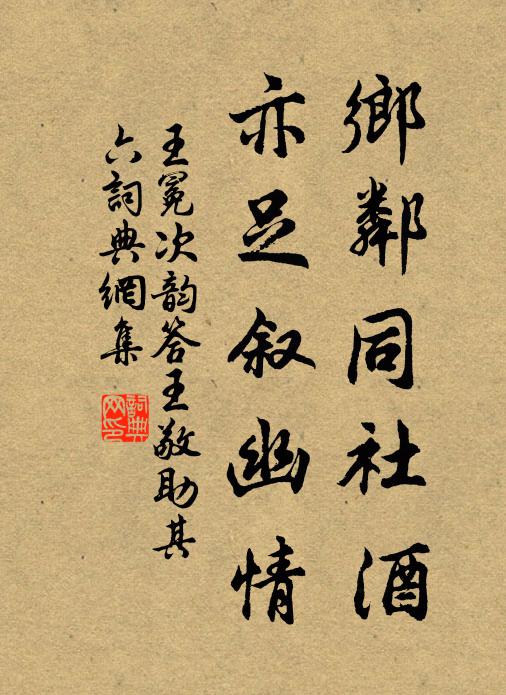 鄉鄰同社酒
亦足叙幽情
王冕次韵答王敬助其
六詞典網集
詞典
网印